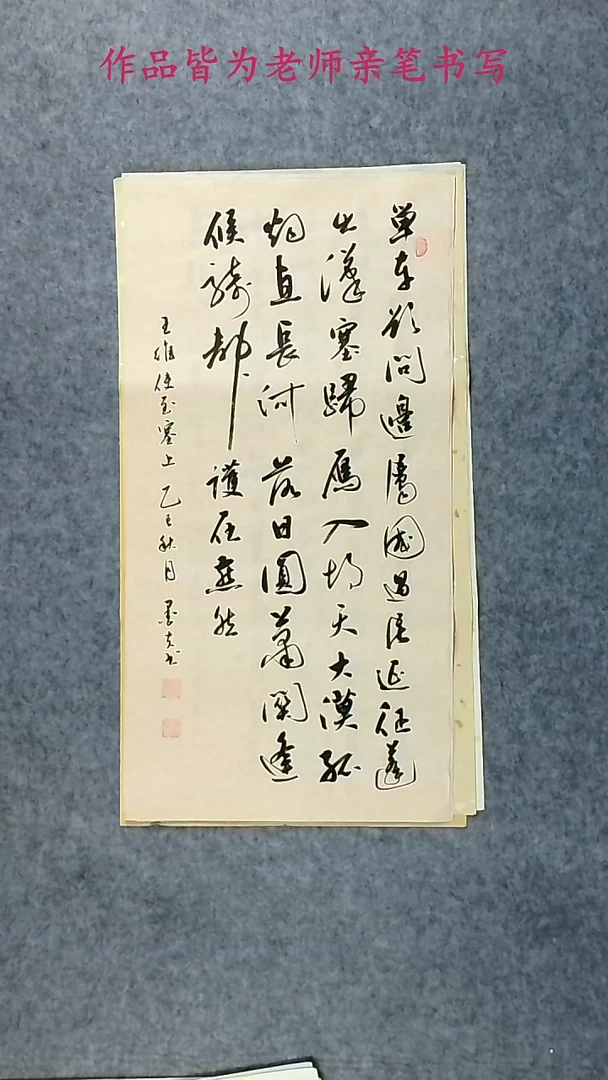 作品皆为老师亲笔书写
单车欲问邊属國過居延征蓬
出漢塞歸雁入胡天大漠孤
烟直長河落日圓蕭関逢
候騎都護在燕然
王维使至塞上 乙巳秋月 墨